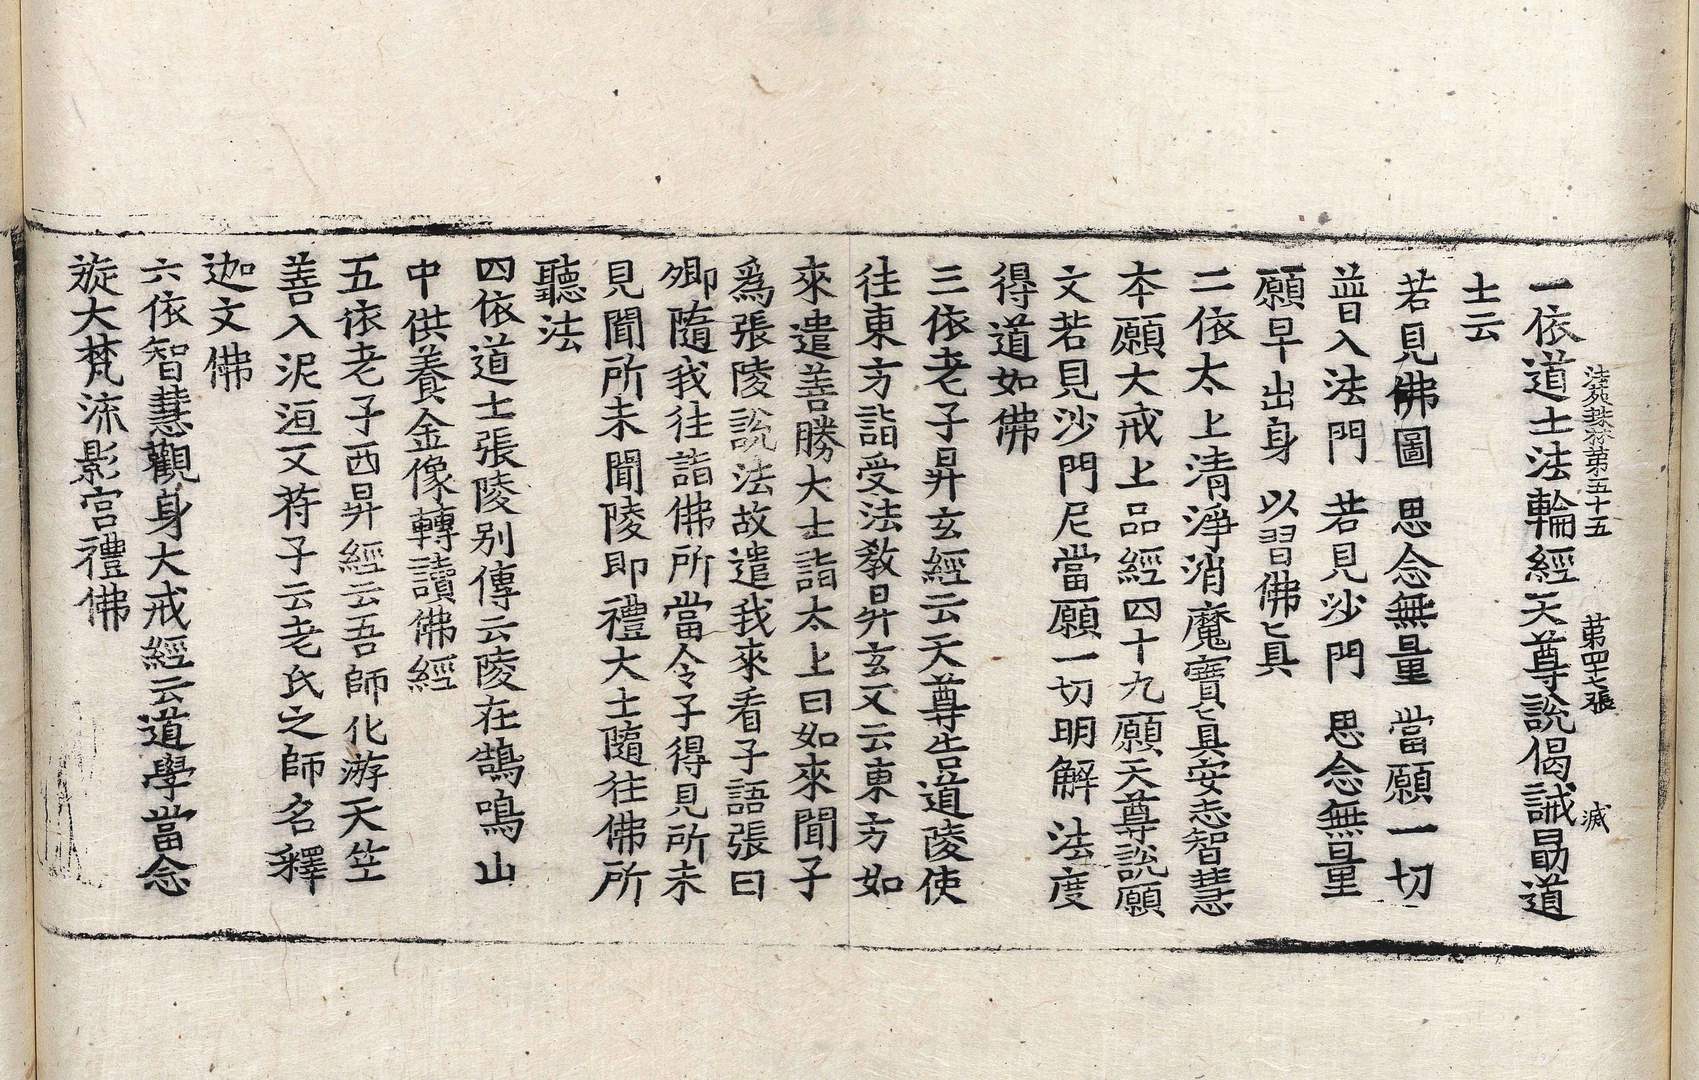 法苑珠林第五十五　第四七張　滅
一依道士法輪經天尊說偈誡勗道
士云
若見佛圖　思念無量　當願一切
普入法門　若見沙門　思念無量
願早出身　以習佛真
二依太上清淨消魔寶真安志智慧
本願大戒上品經四十九願天尊說願
文若見沙門尼當願一切明解法度
得道如佛
三依老子昇玄經云天尊告道陵使
往東方詣受法教昇玄又云東方如
來遣善勝大士詣太上曰如來聞子
爲張陵說法故遣我來看子語張曰
卿隨我往詣佛所當令子得見所未
見聞所未聞陵即禮大士隨往佛所
聽法
四依道士張陵別傳云陵在鵠鳴山
中供養金像轉讀佛經
五依老子西昇經云吾師化游天竺
善入泥洹又符子云老氏之師名釋
迦文佛
六依智慧觀身大戒經云道學當念
旋大梵流影宮禮佛